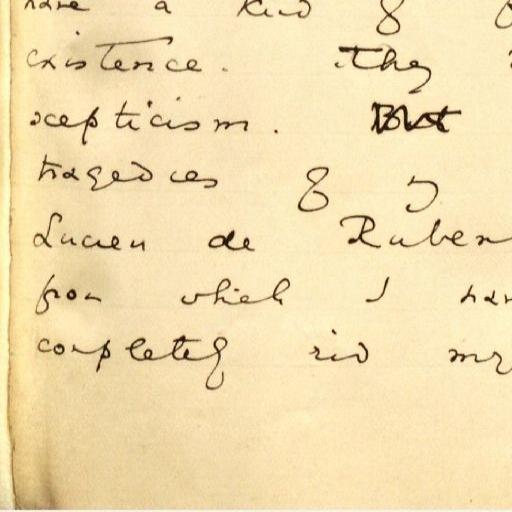 have a kind of
existence. They
scepticism. But
tragedies of
Lucien de Ruben
from which I hav
completely rid my